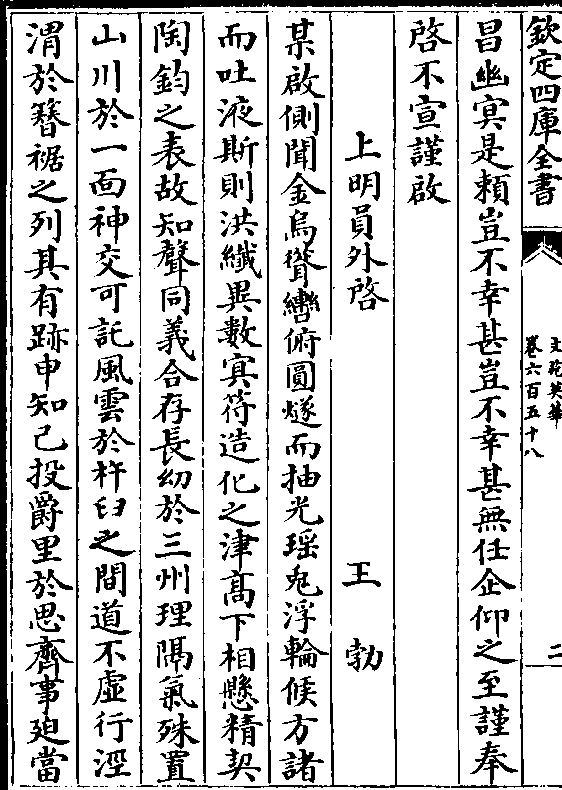 欽定四庫全書
文苑英華
卷六百五十八
二
昌幽㝠是賴豈不幸甚豈不幸甚無任企仰之至謹奉
啓不宣謹啟
上明員外啓
王勃
某啟側聞金烏聳轡俯圓燧而抽光瑶兎浮輪候方諸
而吐液斯則洪纖異數㝠符造化之津髙下相懸精契
陶鈞之表故知聲同義合存長幼於三州理隔氣殊置
山川於一面神交可託風雲於杵臼之間道不虚行涇
渭於簪裾之列其有跡申知己投爵里於思齊事廹當